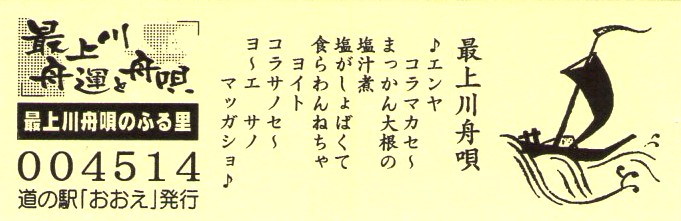 最上川
舟運と舟唄
最上川舟唄のふる里
004514
道の駅「おおえ」発行
最上川舟唄
♪エンヤ
コラマカセ〜
まっかん大根の
塩汁煮
塩がしょぱくて
食らわんねちゃ
ヨイト
コラサノセ〜
ヨ〜エ サノ
マッガショ♪